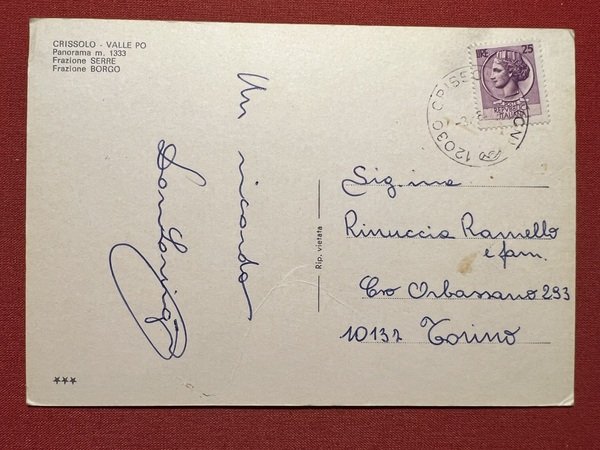 CRISSOLO - VALLE PO
Panorama m. 1333
Frazione SERRE
Frazione BORGO
Un ricordo
Rip. vietata
LIRE 25
12030 CRISSOLO (CN)
Sig.ina
Rinuccia Ramello
e fam.
Cso Orbassano 293
10137 Torino